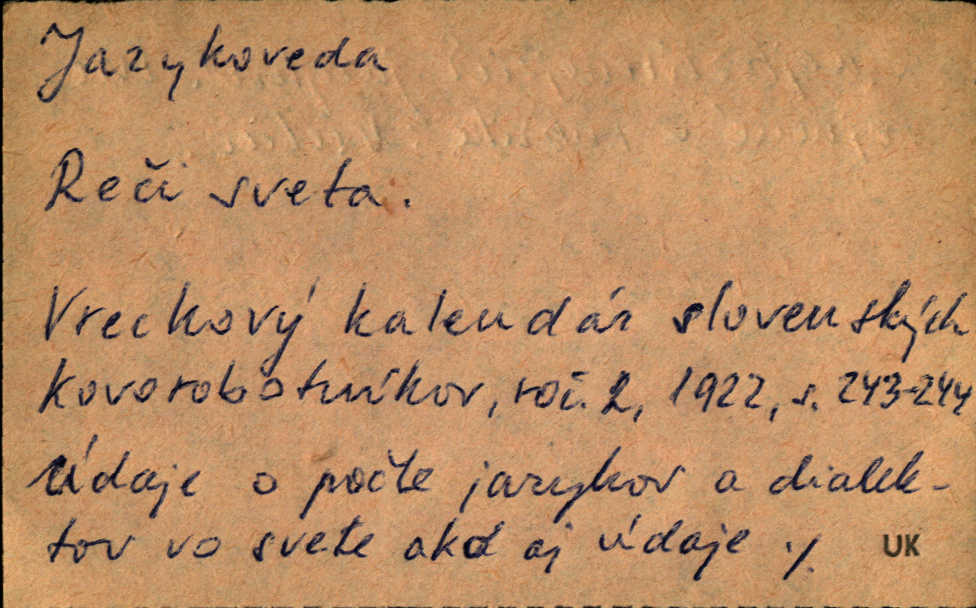 Jazykoveda
Reči sveta.
Vreckový kalendár slovenských
kovorobotníkov, roč. 2, 1922, s. 243-244
Údaje o počte jazykov a dialek-
tov vo svete ako aj údaje ./.
UK